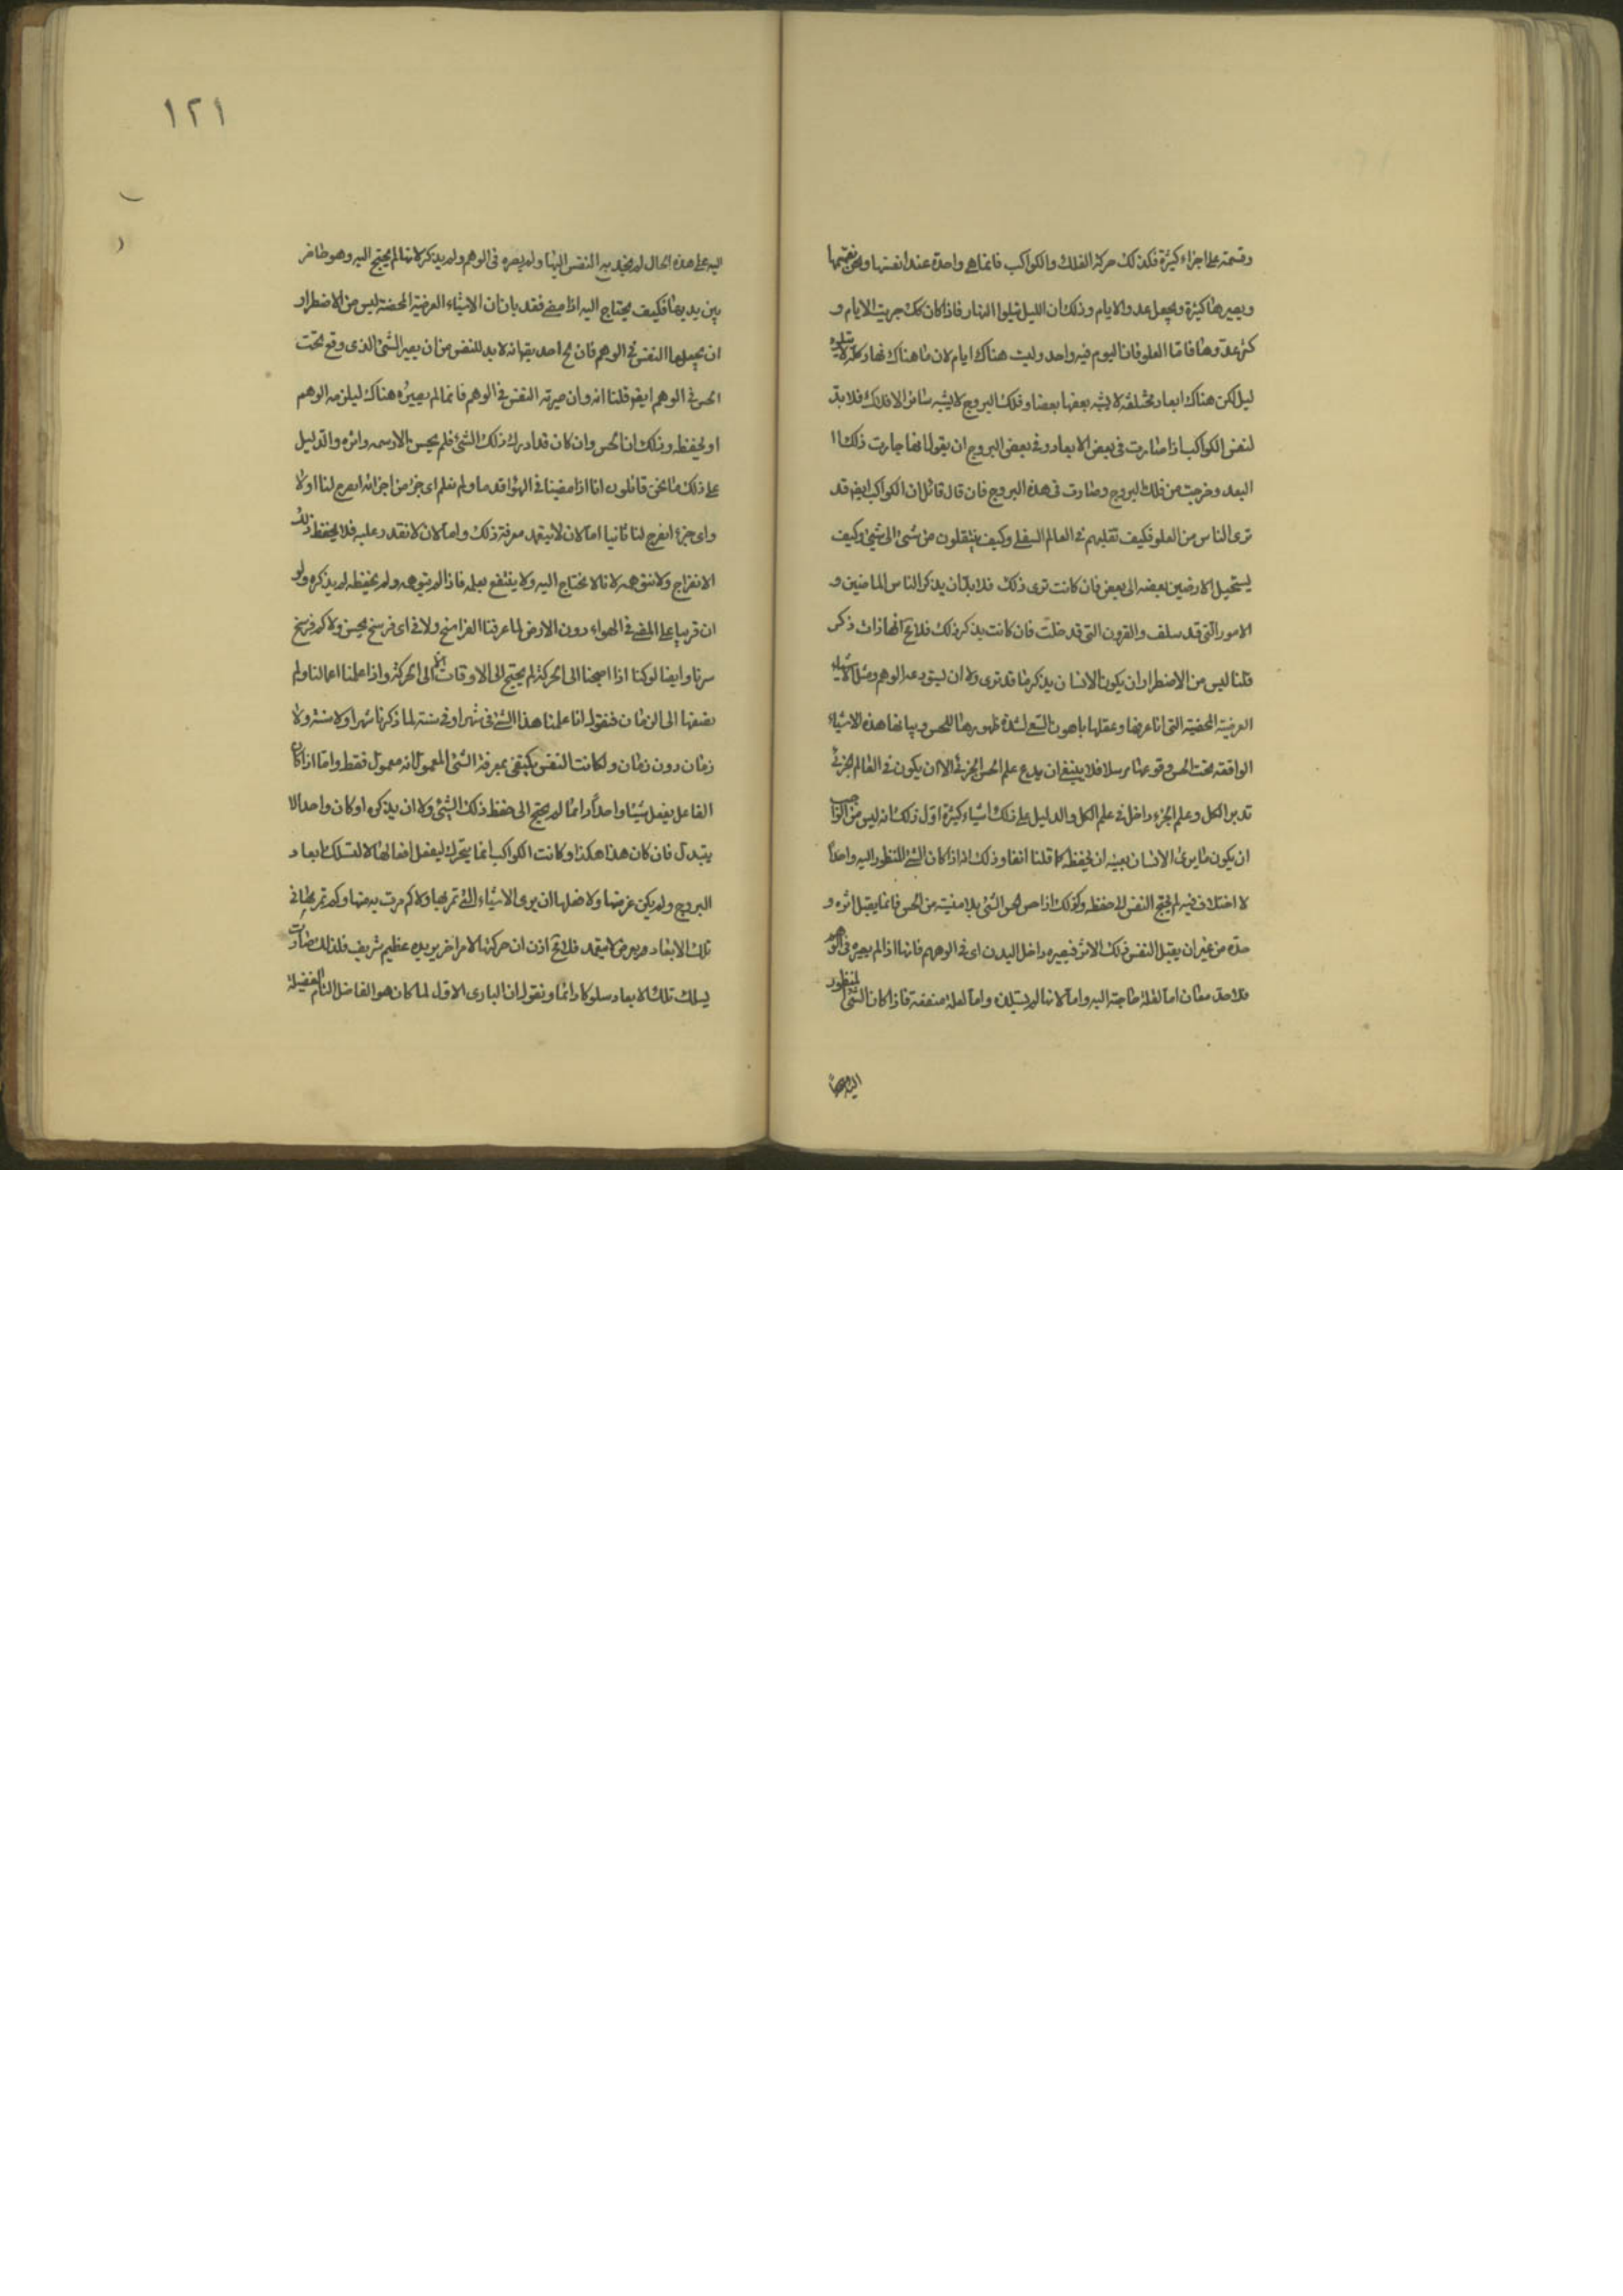 وقسمته على اجزاء كثيرة فكذلك حركة الفلك والكواكب فانما هى واحدة عند انفسها ونحن نقسمها
ويصيرها كثيرة ونجعل عدد الايام وذلك ان الليل يتلوا النهار فاذا كان كك جريت الايام و
كثر عددها فاما العلو فان اليوم فيه واحد وليست هناك ايام لان ما هناك نهار كله لا يتلوه
ليل لكن هناك ابعاد مختلفة لا يشبه بعضها بعضا وفلك البروج لا يشبه سائر الافلاك فلا بد
لنفس الكواكب اذا صارت فى بعض الابعاد وفى بعض البروج ان يقول انها جازت ذلك ا
البعد وخرجت من فلك البروج وصارت فى هذه البروج فان قال قائل ان الكواكب ايضا قد
ترى الناس من العلو فكيف تقلبهم فى العالم السفلى وكيف ينتقلون من شئ الى شئ وكيف
يستحيل الارضين بعضه الى بعض فان كانت ترى ذلك فلا بد ان يذكر الناس الماضين و
الامور التى قد سلف والقرون التى قد خلت فان كانت يذكر ذلك فلا مح انها ذات ذكر
قلنا ليس من الاضطرار ان يكون الانسان يذكر ما قد ترى ولا ان يستودعه الوهم ومثل الاشياء
العرضية المحضية التى انا عرفها وعقلها باهون السعى لشدة ظهورها للحس وبيانها هذه الاشياء
الواقعة تحت الحس وقوعها مرسلا فلا ينبغى ان يدع علم الحس الجزئى الا ان يكون فى العالم الجزئى
تدبر الكل وعلم الجزء داخل فى علم الكل والدليل على ذلك اشياء كثيرة اول ذلك انه ليس من الواجب
ان يكون ما يرى الانسان بعينه ان يحفظه كما قلنا انفا وذلك انه اذا كان الشئ المنظور اليه واحدا
لا اختلاف فيه لم يحتج النفس الى حفظه وكذلك اذا حس الحس الشئ بلا منيته من الحس فانما يقبل اثره و
حده من غير ان يقبل النفس ذلك الاثر فيصيره داخل البدن اى فى الوهم فانها اذا لم يصيره فى الوهم
فلاحد معان اما لقلة حاجته اليه واما لانها لم يستلذه واما لعلة منفعته فاذا كان الشئ المنظور
اليه على هذا
١٢١
اليه على هذه الحال لم يجذبه النفس اليها ولم يصره فى الوهم ولم يذكر لانها لم يحتج اليه وهو حاضر
بين يديها فكيف يحتاج اليه اذا مضى فقد بان ان الاشياء العرضية المحضة ليس من الاضطرار
ان يجعلها النفس فى الوهم فان لج احد يقول انه لا بد للنفس من ان يصير الشئ الذى وقع تحت
الحس فى الوهم ايضا قلنا انه وان صيرته النفس فى الوهم فانما لم يصيره هناك ليلزمه الوهم
او يحفظه وذلك ان الحس وان كان قد ادرك ذلك الشئ فلم يحس الا رسمه واثره والدليل
على ذلك ما نحن قائلون انا اذا مضينا فى الهواء قدما ولم نعلم اى جزء من اجزائه انفرج لنا اولا
واى جزء انفرج لنا ثانيا اما لان لا نتعمد معرفة ذلك واما لان لا نقدر عليه فلا يحفظ ذلك
الانفراج ولا نتوهمه لانا لا نحتاج اليه ولا ينتفع بعلمه فاذا لم نتوهمه ولم نحفظه لم يذكره ولو
ان قريبا على المضى فى الهواء دون الارض لما عرفنا الفراسخ ولا فى اى فرسخ نحس ولا كم فرسخ
سرنا وايضا لو كنا اذا احتجنا الى الحركة لم يحتج الى الاوقات الى الحركة واذا عملنا اعمالنا ولم
نضفها الى الزمان فنقول انا عملنا هذا الشئ فى شهر او فى سنة لما ذكرنا شهرا ولا سنة ولا
زمان دون زمان ولكانت النفس يكتفى بمعرفة الشئ المعمول انه معمول فقط واما اذا كان
الفاعل يفعل شيئا واحدا دائما لم يحتج الى حفظ ذلك الشئ ولا ان يذكره او كان واحدا لا
يتبدل فان كان هذا هكذا وكانت الكواكب انما يتحرك ليفعل افعالها لا لتسلك ابعاد
البروج ولم يكن غرضها ولا فعلها ان يرى الاشياء التى تمر بها ولا كم مرت به منها وكم تمر بها فى
تلك الابعاد بعرض لا بعمد فلا مح اذن ان حركتها لامر اخر يريده عظيم شريف فلذلك صارت
يسلك تلك الابعاد سلوكا دائما ونقول ان البارى الاول لما كان هو الفاضل التام الفضيلة